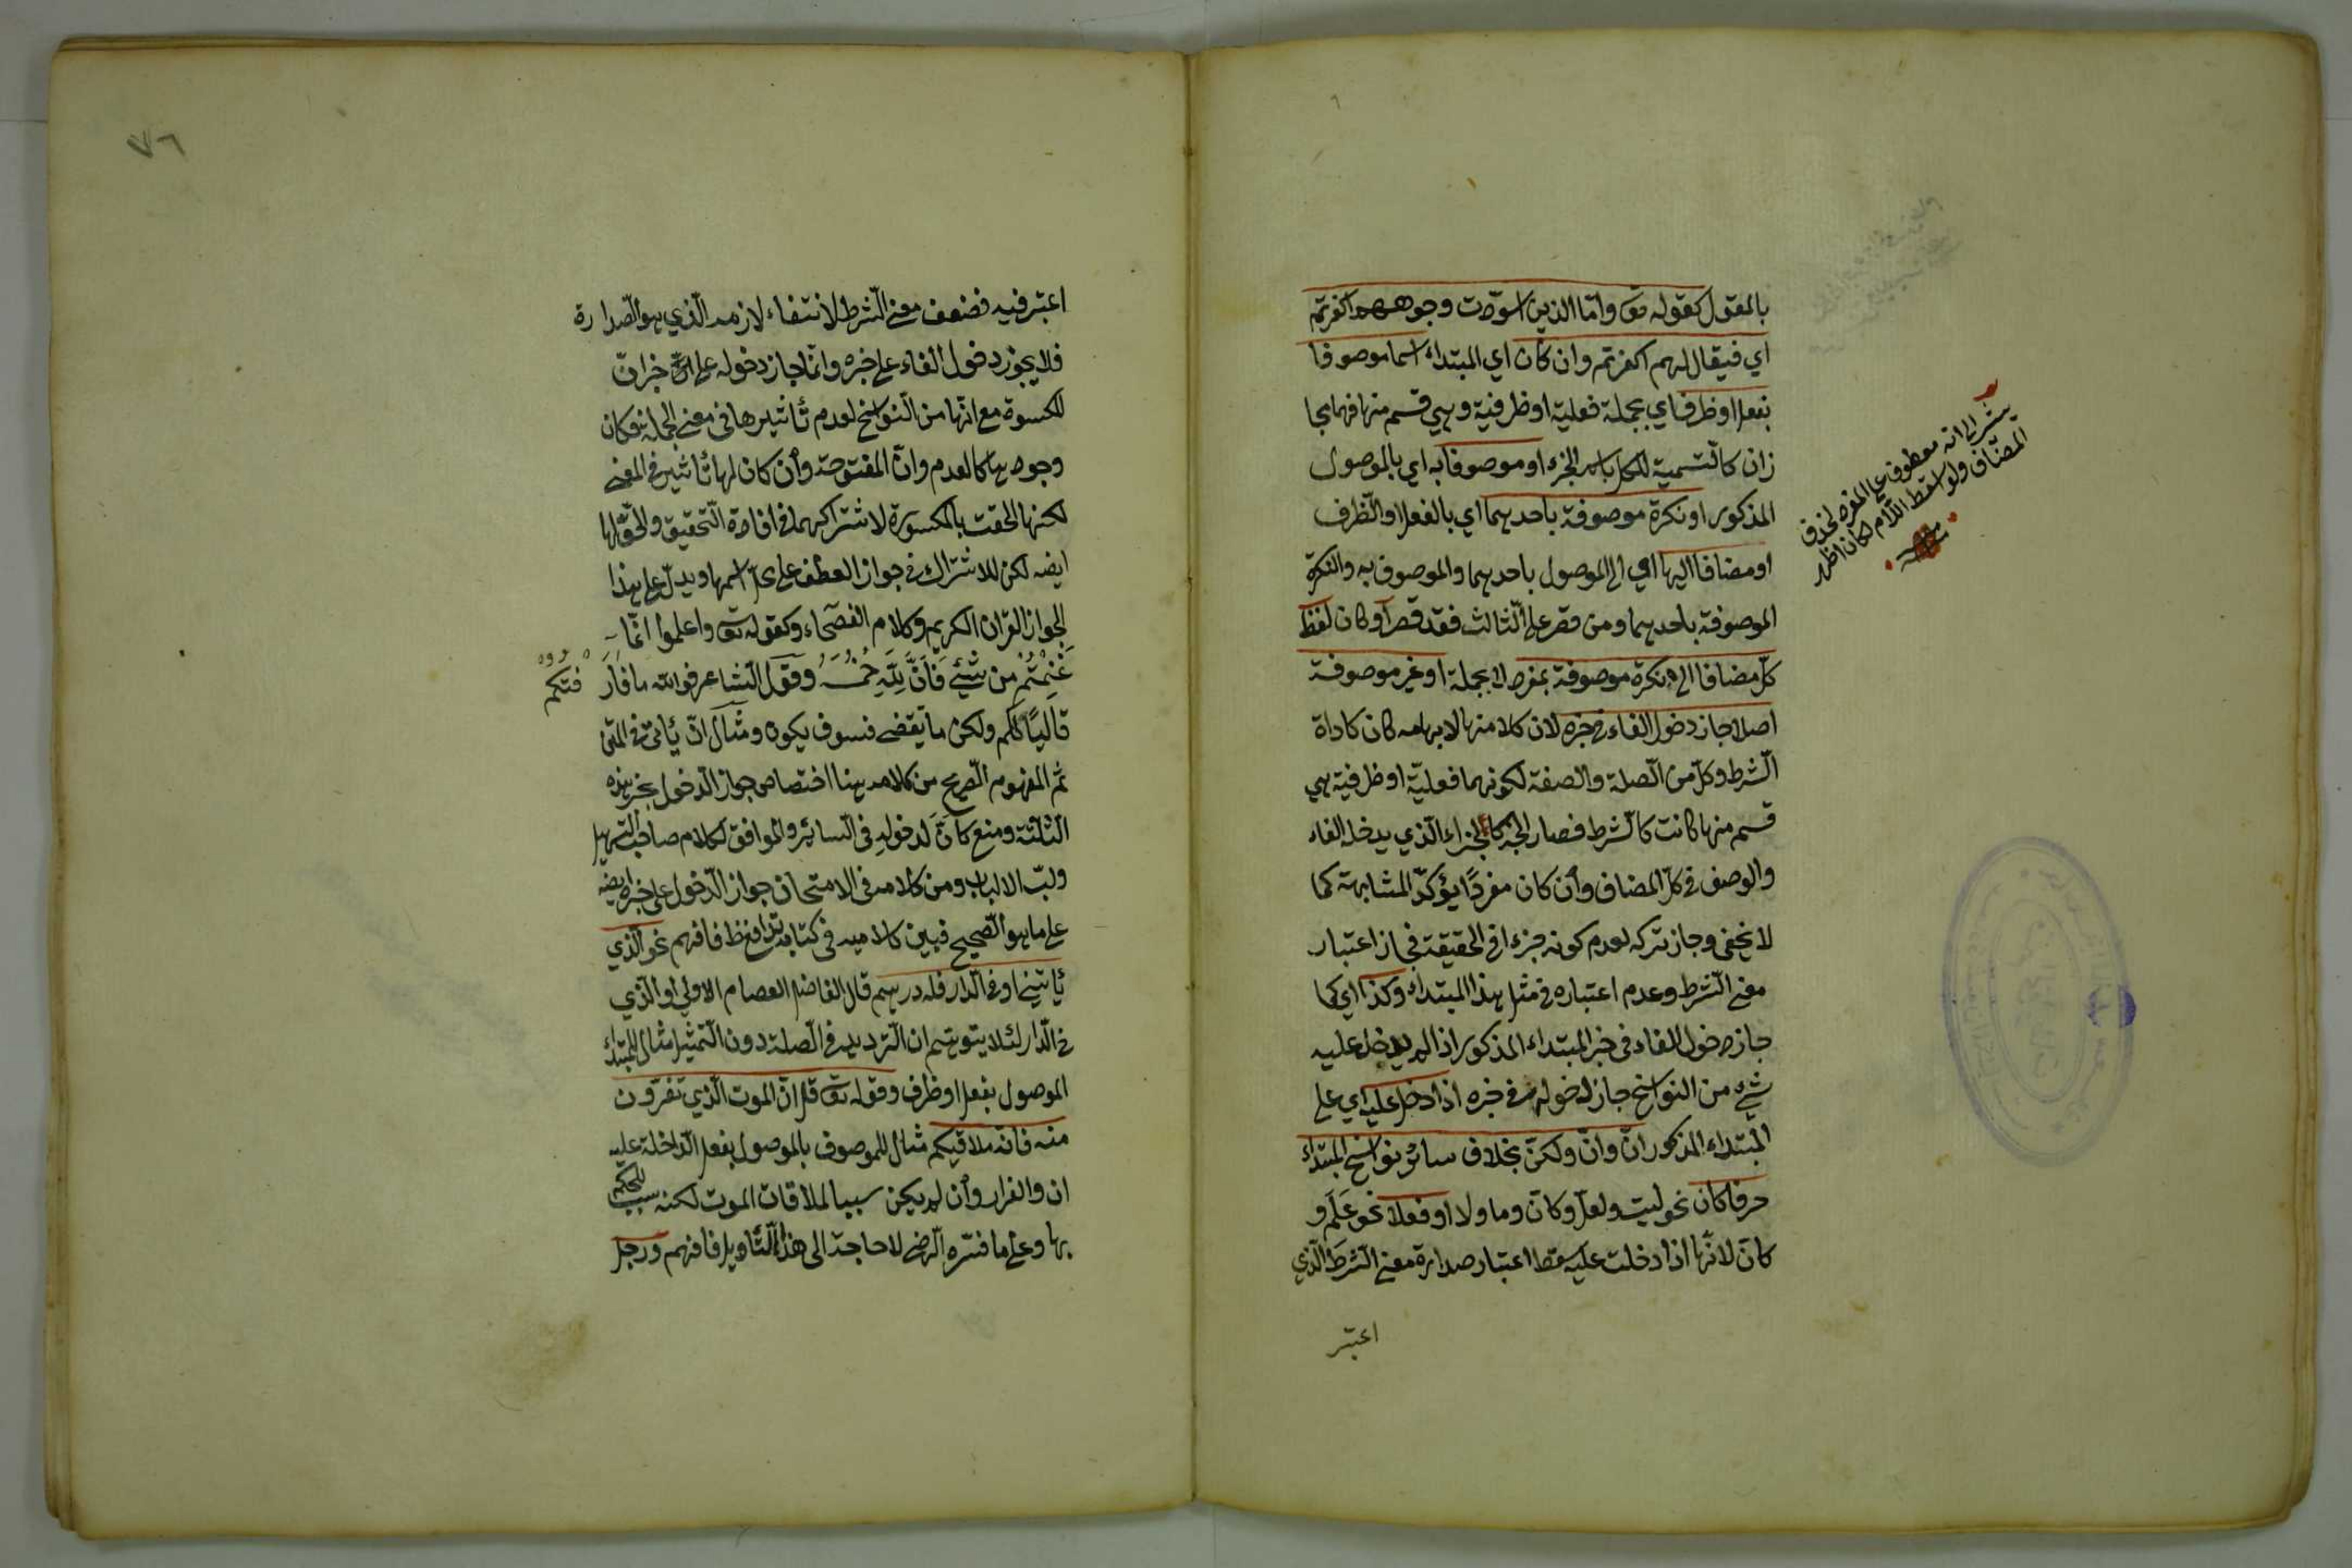 بالمقول كقوله تع واما الذين اسودت وجوههم اكفرتم
اي فيقال لهم اكفرتم وان كان اي المبتداء اسما موصوفا
بفعل او ظرف اي بجملة فعلية او ظرفية وهي قسم منها فهما مجا
زان كالتسمية للكل باسم الجزء او موصوفا به اي بالموصول
المذكور او نكرة موصوفة باحدهما اي بالفعل او الظرف
او مضافا اليها اي الى الموصول باحدهما والموصوف به والنكرة
الموصوفة باحدهما ومن قصر على الثالث فقد قصر او كان لفظ
كل مضافا الى نكرة موصوفة بمفرد لا بجملة او غير موصوفة
اصلا جاز دخول الفاء في خبره لان كلا منها لابهامه كان كاداة
الشرط وكل من الصلة والصفة لكونهما فعلية او ظرفية هي
قسم منها كانت كالشرط فصار الخبر كالجزاء الذي يدخله الفاء
والوصف في كل المضاف وأن كان مفردًا يؤكد المشابهة كما
لا يخفى وجاز تركه لعدم كونه جزء ا في الحقيقة فجاز اعتبار
معنى الشرط وعدم اعتباره في مثل هذا المبتداء وكذا اي كما
جاز دخول الفاء في خبر المبتداء المذكور اذا لم يدخل عليه
شيء من النواسخ جاز دخوله في خبره اذا دخل عليه اي على
المبتداء المذكور انّ وانّ ولكنّ بخلاف سائر نواسخ المبتداء
حرفا كان نحو ليت ولعل وكانّ وما ولا او فعلا نحو عَلَم و
كان لانّها اذا دخلت عليه سقط اعتبار صدارة معنى الشرط الذي
اعتبر
يشير الى انه معطوف على المفرد بحذف
المضاف ولو اسقط اللام لكان اظهر
منه
٧٦
اعتبر فيه فضعف معنى الشرط لانتفاء لازمه الذي هو الصدارة
فلا يجوز دخول الفاء على خبره وانما جاز دخوله على خبر انّ
المكسوة مع انّها من النواسخ لعدم تأثيرها في معنى الجملة فكان
وجودها كالعدم وانّ المفتوحة وأن كان لها تأثير في المعنى
لكنها الحقت بالمكسورة لاشتراكهما في افادة التحقيق والحق لها
ايضه لكن للاشتراك في جواز العطف على اسمها ويدل على هذا
الجواز القران الكريم وكلام الفصحاء وكقوله تع واعلموا انّما
غَنِمْتُم من شيء فَاَنَّ لِلّهِ خُمُسَهُ وقول الشاعر فوالله ما فارَ فتكم
قاليًا لكم ولكن ما يقضى فسوف يكون ومثال انّ يأتي في المتن
ثم المفهوم الصريح من كلامه هنا اختصاص جواز الدخول بخبر هذه
الثلثة ومنع كانّ لدخوله في السائر والموافق لكلام صاحب التسهيل
ولبّ الالباب ومن كلامه في الامتحان جواز الدخول على خبره ايضه
على ما هو الصحيح فبين كلاميه في كتابه تدافع ظ فافهم نحو الذي
يأتيني او في الدار فله درهم قال الفاضل العصام الاولى او الذي
في الدار لئلا يتوهم ان الترديد في الصلة دون التمثيل مثال للمبتداء
الموصول بفعل او ظرف وقوله تع قل انّ الموت الذي تفرون
منه فانه ملاقيكم مثال للموصوف بالموصول بفعل الداخلة عليه
ان والفرار وأن لم يكن سببا لملاقات الموت لكنه سبب للحكم
بها وعلى ما فسّره الرضي لا حاجة الى هذا التأويل فافهم ورجل